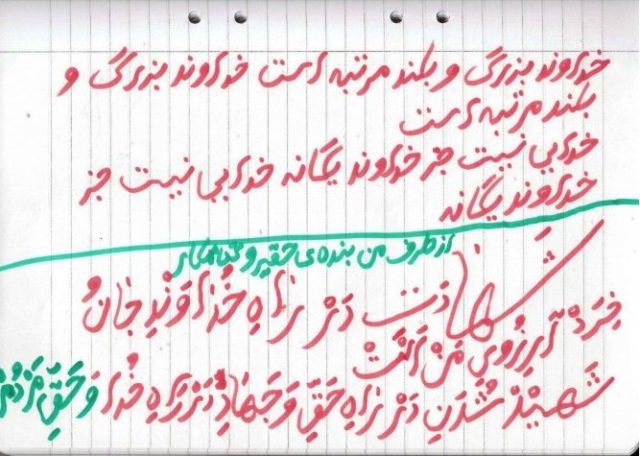 خداوند بزرگ و بلند مرتبه است خداوند بزرگ و
بلند مرتبه است
خدایی نیست جز خداوند یگانه خدایی نیست جز
خداوند یگانه
از طرف من بنده‌ی حقیر و گناهکار
شهادت دَر راهِ خُداوَندِ جان و
خِرَدْ آرزویِ مَنْ اَستْ
شَهیدْ شُدَنِ دَر راهِ حَقّ وَ جَهادِ دَر راهِ خُدا وَ حَقِّ مَردُمْ